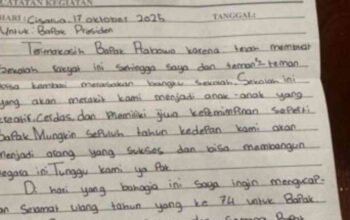 CATATAN KEGIATAN
HARI: Cisarua, 17 oktober 2025 TANGGAL:
Untuk: Bapak Presiden
Termakasih Bapak Prabowo karena telah membuat
sekolah rakyat ini sehingga saya dan teman²teman
bisa kembali merasakan bangku sekolah. Sekolah ini
yang akan merakit kami menjadi anak-anak yang
kreatif, Cerdas, dan Memiliki jiwa kepemimpinan seperti
Bapak Mungkin sepuluh tahun kedepan kami akan
menjadi orang yang sukses dan bisa membangun
negara ini. Tunggu kami ya Pak
Di hari yang bahagia ini saya ingin mengucap-
an selamat ulang tahun yang ke 74 untuk Bapak